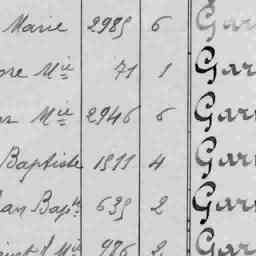 Marie 2985 6 Gar
re Mie 71 1 Gar
Mie 2946 6 Gar
Baptiste 1511 4 Gar
an Bapte 635 2 Gar
Mie 976 2 Gar